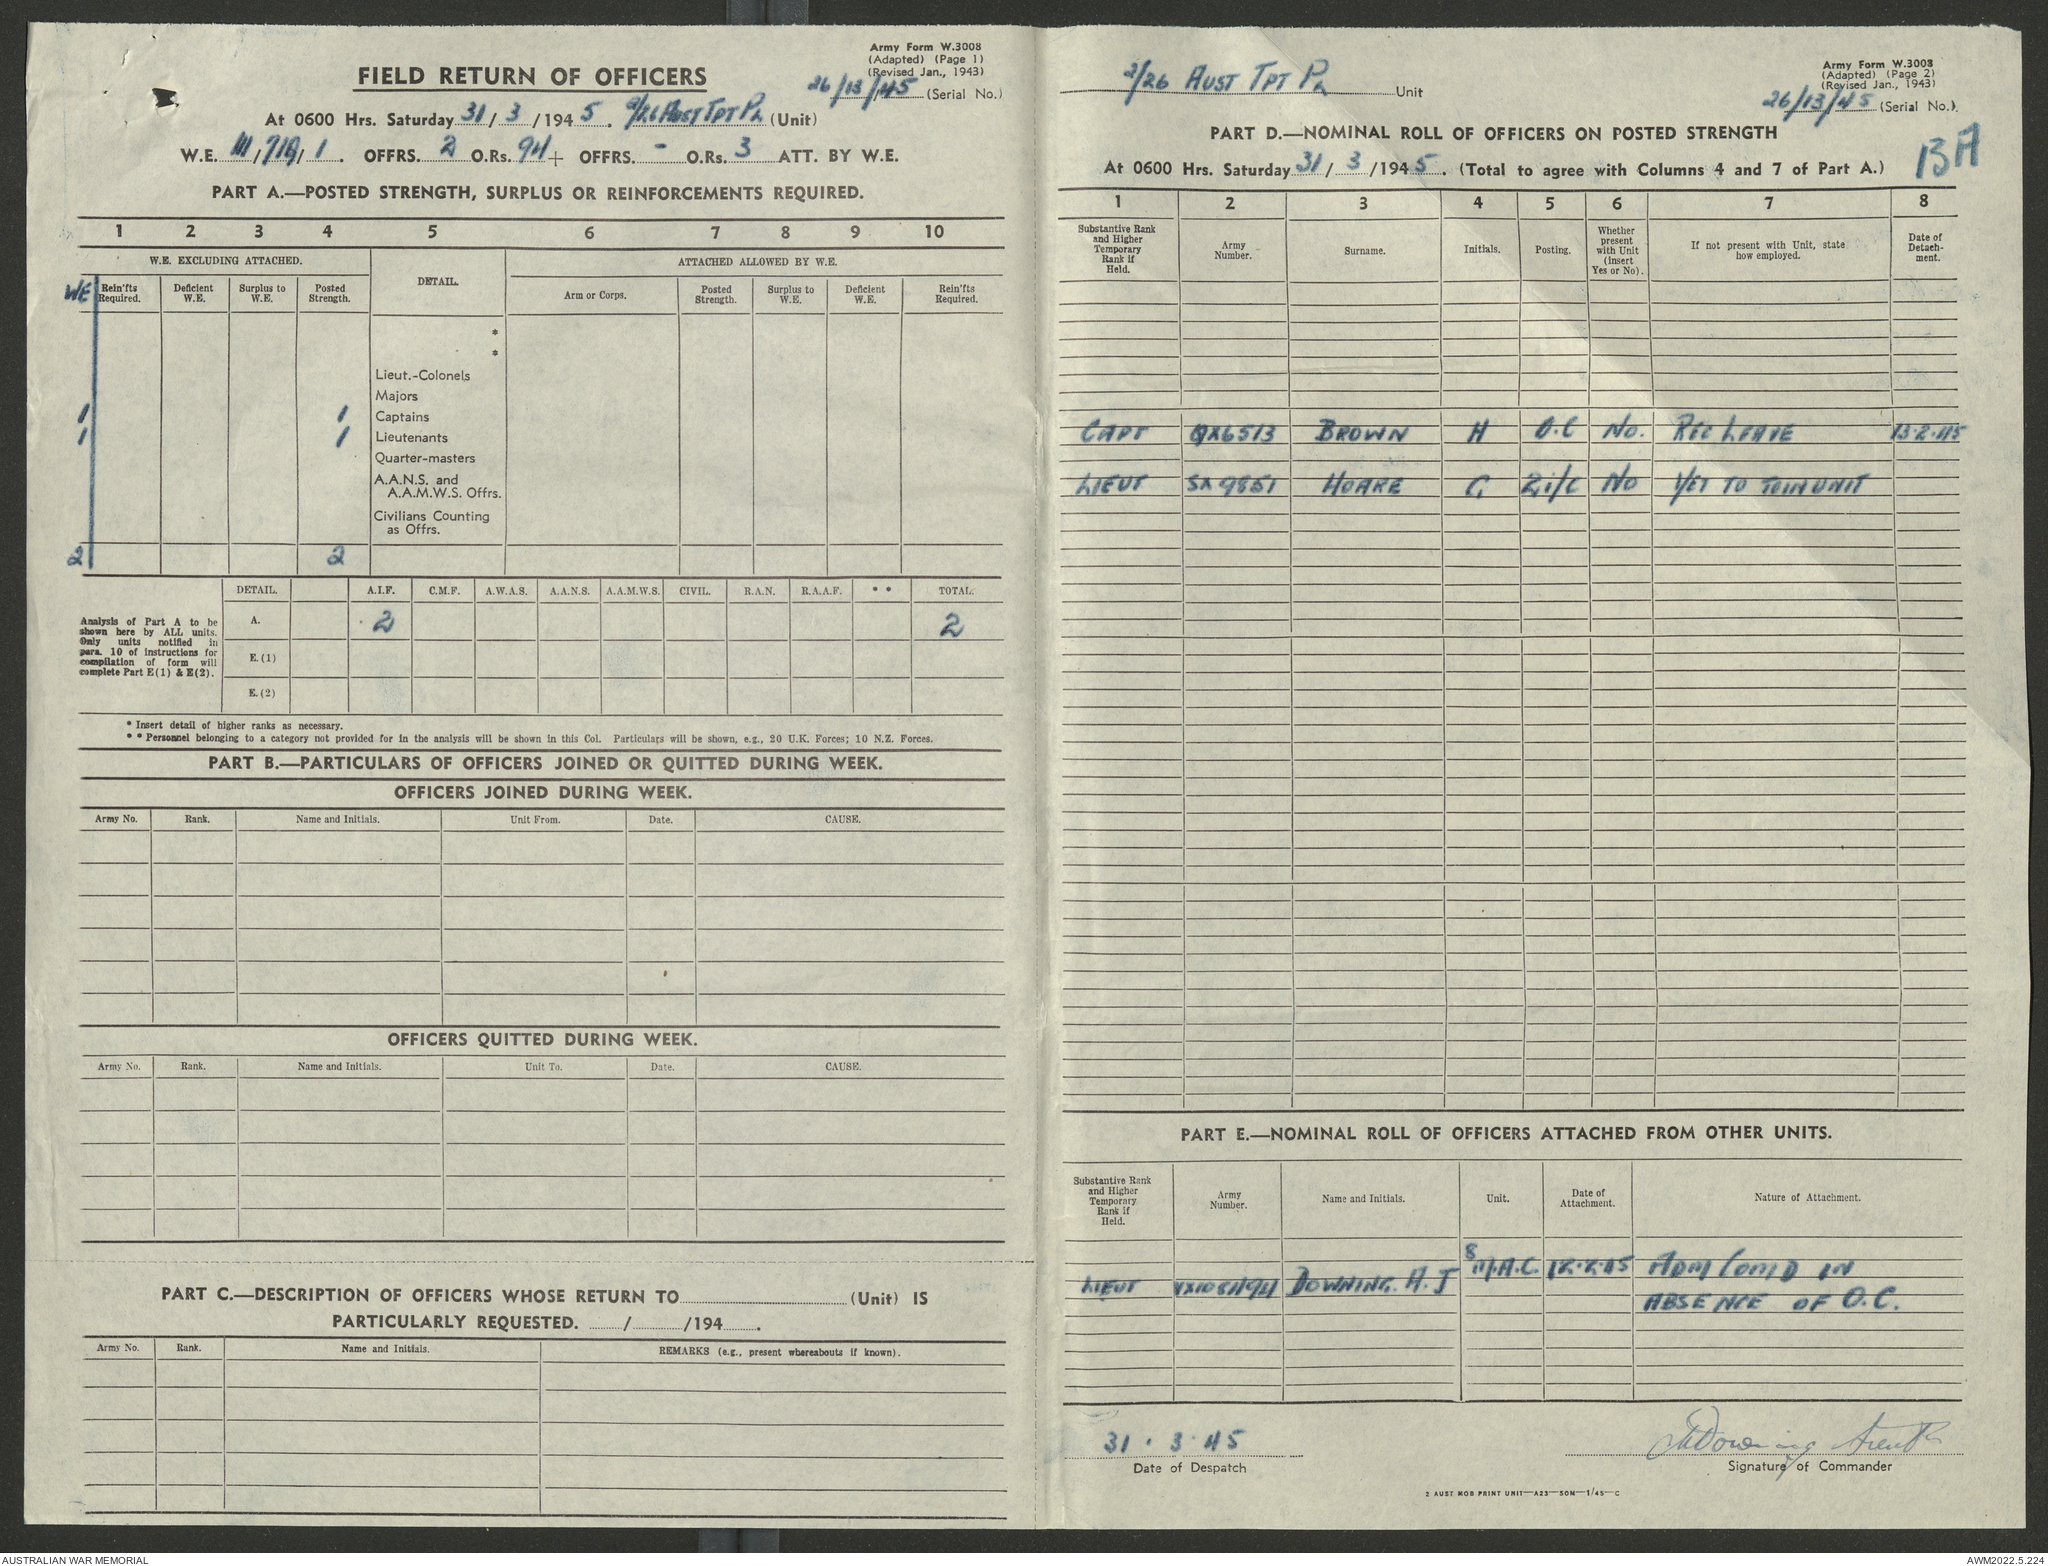 Army Form W.3008
(Adapted) (Page 1)
(Revised Jan., 1943)
FIELD RETURN OF OFFICERS
26/13/45 (Serial No.)
At 0600 Hrs. Saturday 31/3/1945. 2/26 AUST TPT Pl (Unit)
W.E. III/718/1. OFFRS. 2 O.Rs. 94 + OFFRS. - O.Rs. 3 ATT. BY W.E.
PART A.—POSTED STRENGTH, SURPLUS OR REINFORCEMENTS REQUIRED.
1 2 3 4 5 6 7 8 9 10
W.E. EXCLUDING ATTACHED. DETAIL. ATTACHED ALLOWED BY W.E.
WE Rein'fts Required. Deficient W.E. Surplus to W.E. Posted Strength. Arm or Corps. Posted Strength. Surplus to W.E. Deficient W.E. Rein'fts Required.
*
*
Lieut.-Colonels
Majors
1 1 Captains
1 1 Lieutenants
Quarter-masters
A.A.N.S. and
A.A.M.W.S. Offrs.
Civilians Counting
as Offrs.
2 2
DETAIL. A.I.F. C.M.F. A.W.A.S. A.A.N.S. A.A.M.W.S. CIVIL. R.A.N. R.A.A.F. * * TOTAL.
Analysis of Part A to be
shown here by ALL units.
Only units notified in
para. 10 of instructions for
compilation of form will
complete Part E(1) & E(2).
A. 2 2
E.(1)
E.(2)
* Insert detail of higher ranks as necessary.
* * Personnel belonging to a category not provided for in the analysis will be shown in this Col. Particulars will be shown, e.g., 20 U.K. Forces; 10 N.Z. Forces.
PART B.—PARTICULARS OF OFFICERS JOINED OR QUITTED DURING WEEK.
OFFICERS JOINED DURING WEEK.
Army No. Rank. Name and Initials. Unit From. Date. CAUSE.
OFFICERS QUITTED DURING WEEK.
Army No. Rank. Name and Initials. Unit To. Date. CAUSE.
PART C.—DESCRIPTION OF OFFICERS WHOSE RETURN TO (Unit) IS
PARTICULARLY REQUESTED. / /194 .
Army No. Rank. Name and Initials. REMARKS (e.g., present whereabouts if known).
2/26 AUST TPT Pl Unit
Army Form W.3008
(Adapted) (Page 2)
(Revised Jan., 1943)
26/13/45 (Serial No.).
PART D.—NOMINAL ROLL OF OFFICERS ON POSTED STRENGTH
13A
At 0600 Hrs. Saturday 31/3/1945. (Total to agree with Columns 4 and 7 of Part A.)
1 2 3 4 5 6 7 8
Substantive Rank and Higher Temporary Rank if Held. Army Number. Surname. Initials. Posting. Whether present with Unit (insert Yes or No). If not present with Unit, state how employed. Date of Detachment.
CAPT QX6513 BROWN H O.C NO. REC LEAVE 13.2.45
LIEUT SX9851 HOARE G 2i/c NO YET TO JOIN UNIT
PART E.—NOMINAL ROLL OF OFFICERS ATTACHED FROM OTHER UNITS.
Substantive Rank and Higher Temporary Rank if Held. Army Number. Name and Initials. Unit. Date of Attachment. Nature of Attachment.
LIEUT DOWNING. A.J 8 M.A.C. 12.2.45 ADM COMD IN
ABSENCE OF O.C.
31.3.45
Date of Despatch
A Downing Lieut
Signature of Commander
2 AUST MOB PRINT UNIT—A23—50M—1/45—C
AUSTRALIAN WAR MEMORIAL
AWM2022.5.224